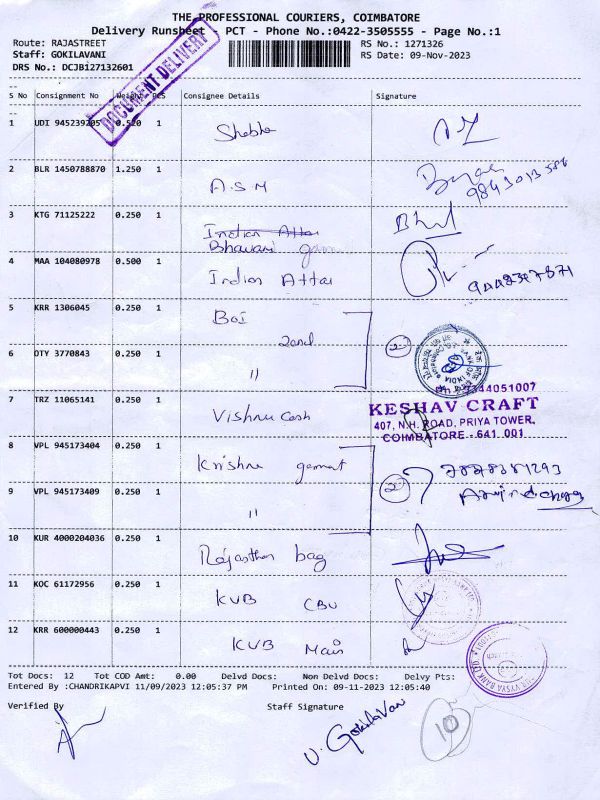 THE PROFESSIONAL COURIERS, COIMBATORE
Delivery Runsheet - PCT - Phone No.:0422-3505555 - Page No.:1
Route: RAJASTREET
RS No.: 1271326
Staff: GOKILAVANI
RS Date: 09-Nov-2023
DRS No.: DCJB127132601
DOCUMENT DELIVERY
S No Consignment No Weight PCS Consignee Details Signature
1 UDI 945239205 0.520 1 Shobha
2 BLR 1450788870 1.250 1 A.S.M
3 KTG 71125222 0.250 1 Indian Attar
Bhavani
4 MAA 104080978 0.500 1 Indian Attar
5 KRR 1306045 0.250 1 BOI
2and
6 OTY 3770843 0.250 1 "
BANK OF INDIA
7 TRZ 11065141 0.250 1 Vishnu Cash
KESHAV CRAFT
407, N.H. ROAD, PRIYA TOWER,
COIMBATORE - 641 001
8 VPL 945173404 0.250 1 Krishna garment
9 VPL 945173409 0.250 1 "
10 KUR 4000204036 0.250 1 Rajasthan bag
11 KOC 61172956 0.250 1 KVB CBU
12 KRR 600000443 0.250 1 KVB Main
Tot Docs: 12 Tot COD Amt: 0.00 Delvd Docs: Non Delvd Docs: Delvy Pts:
Entered By :CHANDRIKAPVI 11/09/2023 12:05:37 PM Printed On: 09-11-2023 12:05:40
Verified By Staff Signature
V. Gokilavani
10